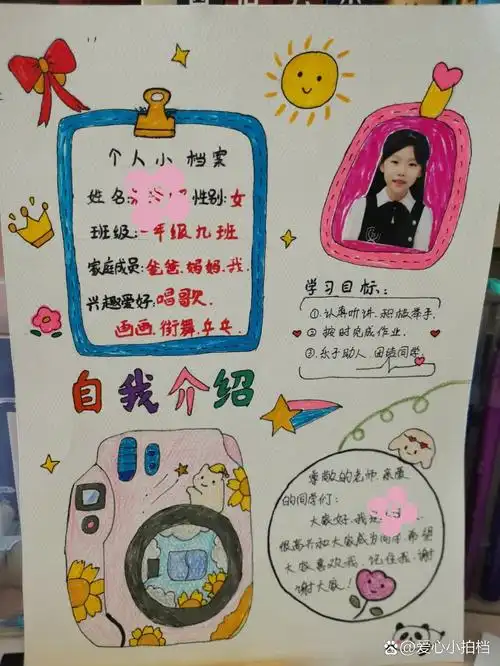 个人小档案
姓名: 性别:女
班级:一年级九班
家庭成员:爸爸.妈妈.我.
兴趣爱好:唱歌.
画画.街舞.乒乓.
学习目标:
①.认真听讲.积极举手.
②.按时完成作业.
③.乐于助人.团结同学.
自我介绍
尊敬的老师.亲爱
的同学们:
大家好.我是
很高兴和大家成为同学.希望
大家喜欢我.记住我.谢
谢大家!
@爱心小拍档